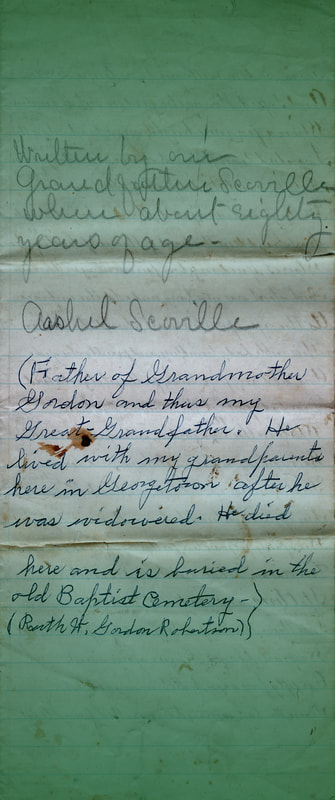 Written by our
Grandfather Scoville
when about eighty
years of age -
Aashel Scoville
(Father of Grandmother
Gordon and thus my
Great-Grandfather. He
lived with my grandparents
here in Georgetown after he
was widowered. He died
here and is buried in the
old Baptist Cemetery -)
(Ruth H. Gordon Robertson)